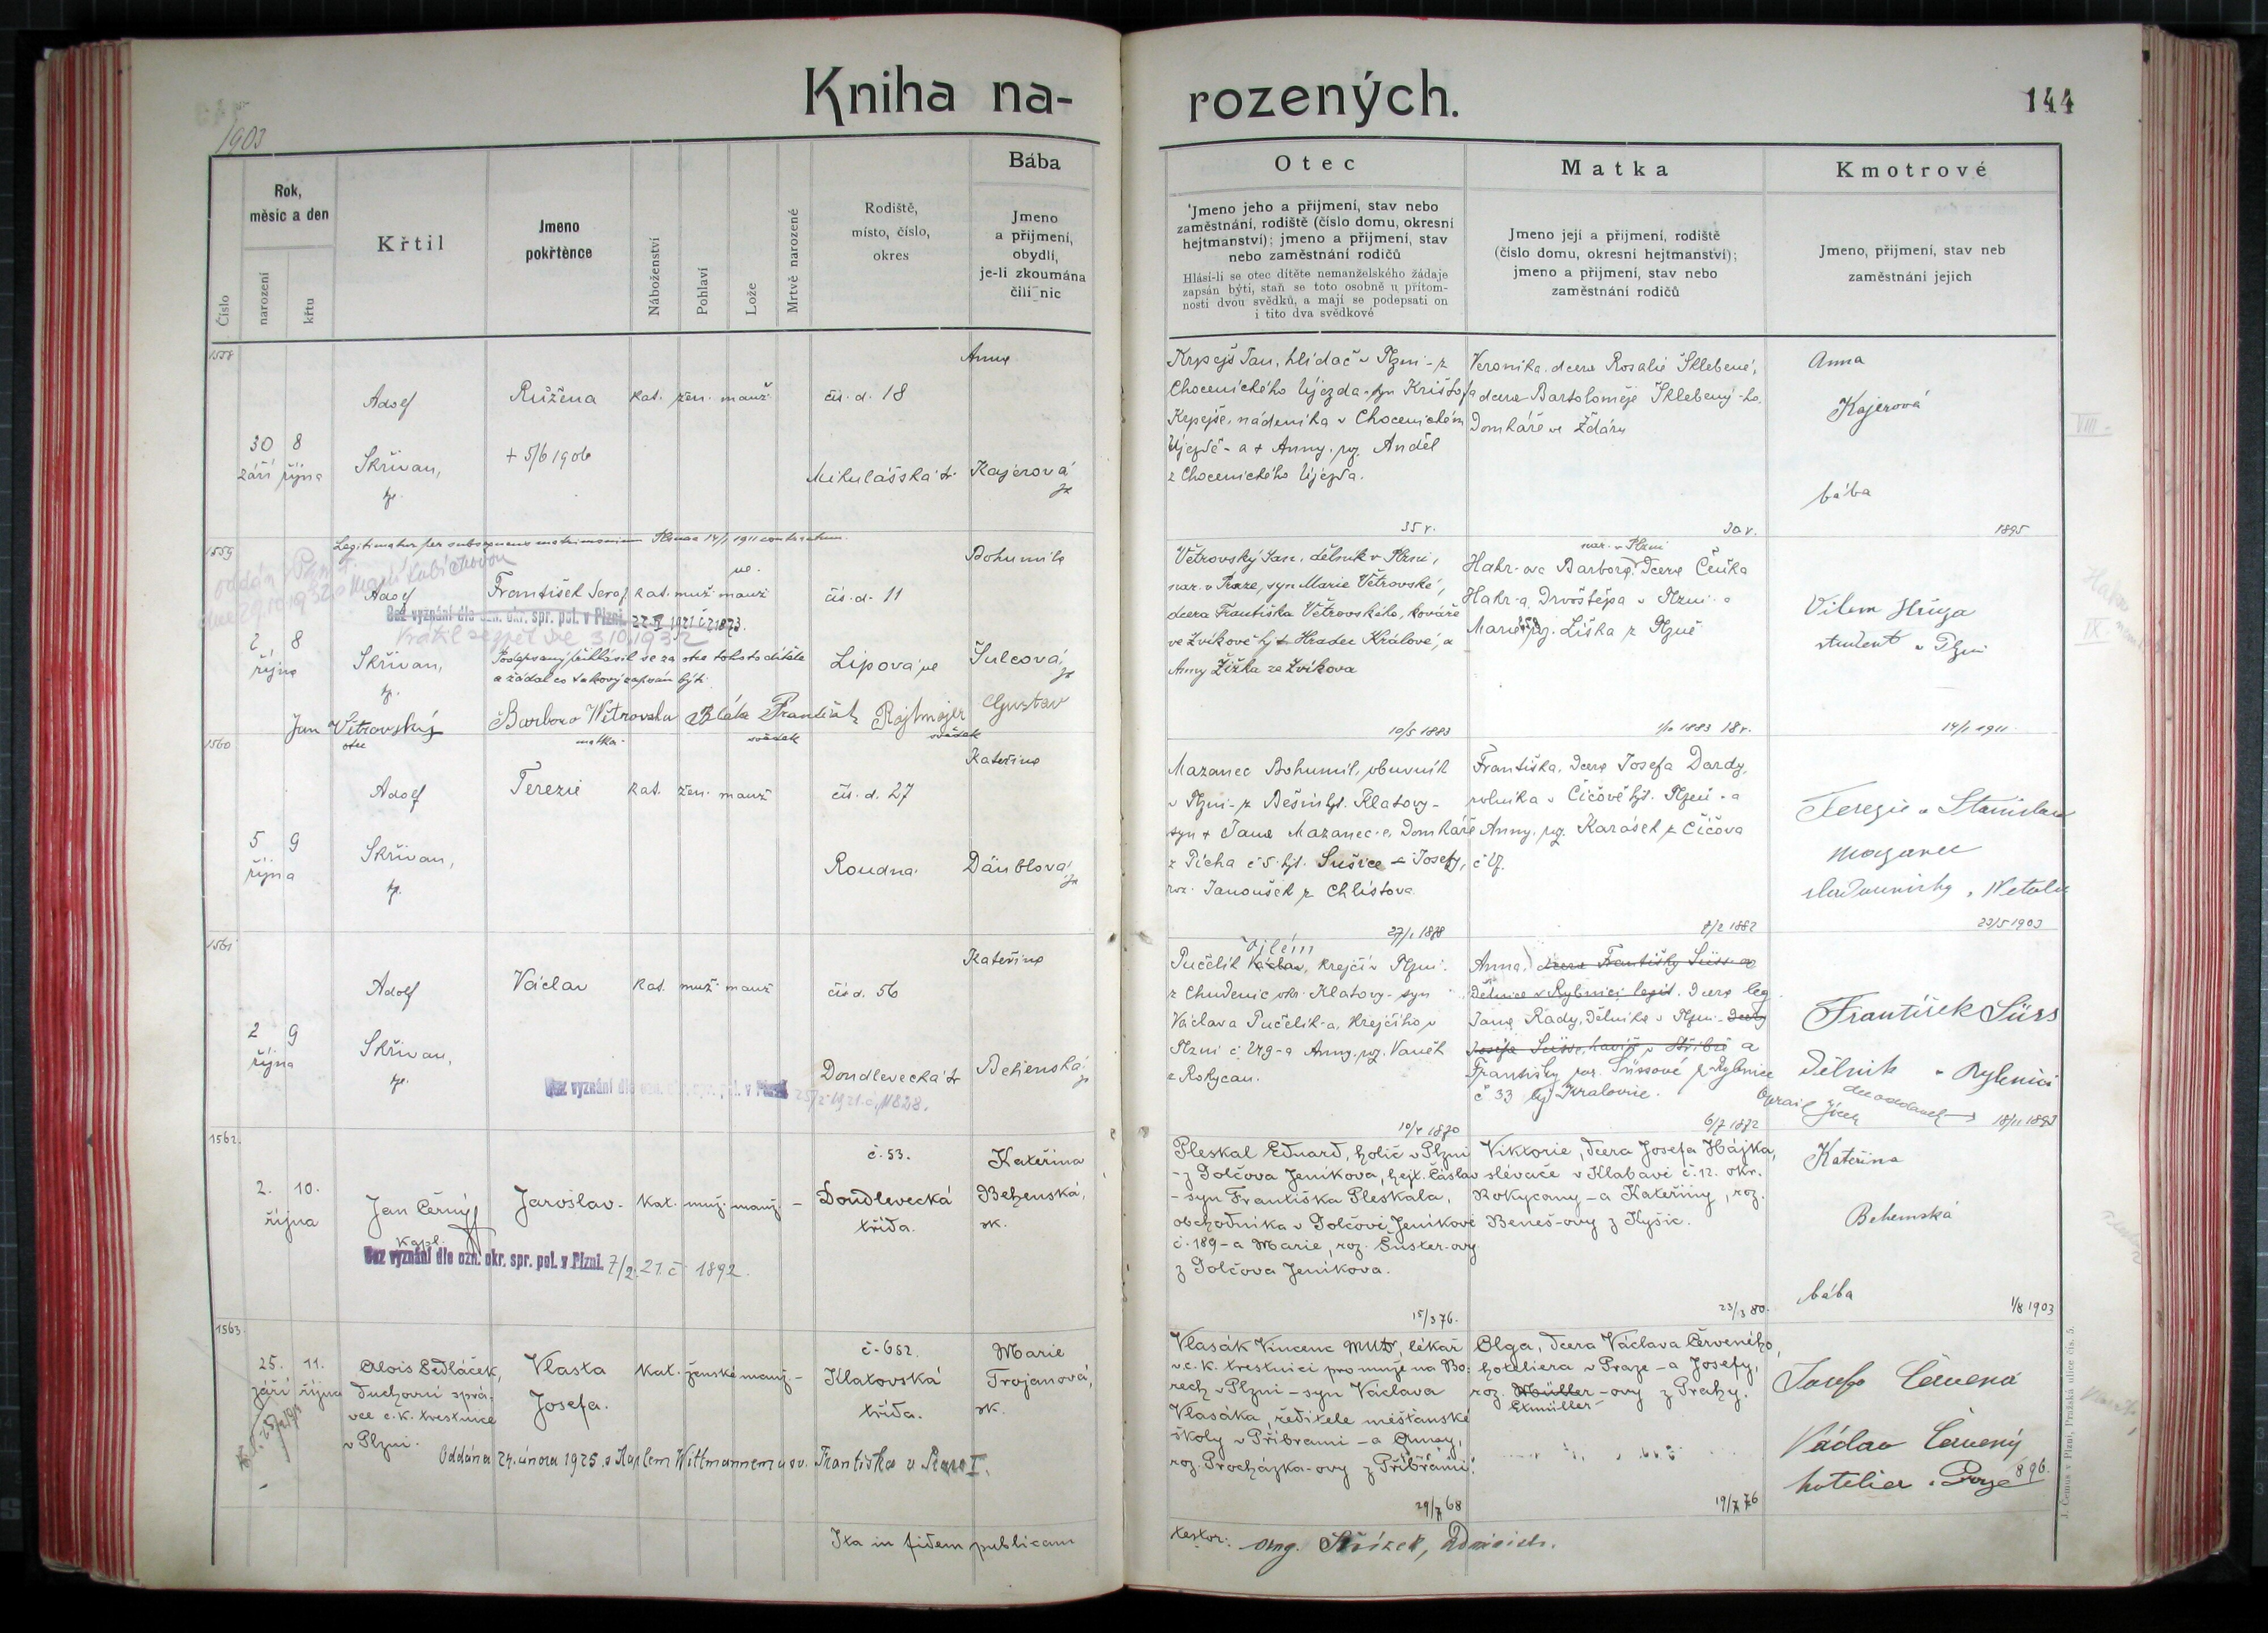 Kniha na-
rozených.
144
1903
Číslo
Rok,
měsíc a den
narození
křtu
Křtil
Jmeno
pokřtěnce
Náboženství
Pohlaví
Lože
Mrtvě narozené
Rodiště,
místo, číslo,
okres
Bába
Jmeno
a přijmení,
obydlí,
je-li zkoumána
čili nic
Otec
Jmeno jeho a přijmení, stav nebo
zaměstnání, rodiště (číslo domu, okresní
hejtmanství); jmeno a přijmení, stav
nebo zaměstnání rodičů
Hlásí-li se otec dítěte nemanželského žádaje
zapsán býti, staň se toto osobně u přítom-
nosti dvou svědků, a mají se podepsati on
i tito dva svědkové
Matka
Jmeno její a přijmení, rodiště
(číslo domu, okresní hejtmanství);
jmeno a přijmení, stav nebo
zaměstnání rodičů
Kmotrové
Jmeno, přijmení, stav neb
zaměstnání jejich
1558
30 8
září října
Adolf
Skřivan,
Růžena
+ 5/6 1906
kat. žen. manž.
čís. d. 18
Mikulášská tř.
Anna
Kajerová
Krpejš Jan, hlídač v Plzni - z
Chocenického Újezda - syn Krištofa
Krpejše, nádeníka v Chocenickém
Újezdě - a + Anny, roz. Anděl
z Chocenického Újezda.
35 r.
Veronika, dcera Rosalie Šklebené,
dcera Bartoloměje Šklebený-ho
Domkáře ve Ždáru
30 r.
Anna
Kajerová
bába
1895
1559
Legitimatur per subsequens matrimonium Plsnae 14/1 1911 contractum.
2 8
října
Adolf
Skřivan,
František Seraf. kat. muž. manž
ne.
Bez vyznání dle ozn. okr. spr. pol. v Plzni. 22/II 1921 č. 21873.
Vrátil se zpět dne 3.10.1932
Podepsaný přihlásil se za otce tohoto dítěte
a žádal co takový zapsán býti
čís. d. 11
Lipová ul
Bohumila
Šulcová,
Jan Větrovský
otec
Barbora Wětrovska
matka
Bláha František
svědek
Rajtmajer Gustav
svědek
Větrovský Jan, dělník v Plzni,
nar. v Praze, syn Marie Větrovské,
dcera Františka Větrovského, kováře
ve Zvíkově hj. Hradec Králové, a
Anny Žižka ze Zvíkova
10/5 1883
nar. v Plzni
Hahr-ova Barbora, dcera Čeňka
Hahr-a, Drvoštěpa v Plzni - a
Marie roz. Liška z Plzně
1/10 1883 18 r.
Vilem Hůga
student v Plzni
14/1 1911
1560
5 9
října
Adolf
Skřivan,
Terezie
kat. žen. manž
čís. d. 27
Roudná
Kateřina
Däublová
Mazanec Bohumil, obuvník
v Plzni - z Běšin hjt. Klatovy -
syn + Jana Mazanec-e, Domkáře
z Picha č. 5. hjt. Sušice - a Josefy,
roz. Janoušek z Chlístova
27/1 1878
Františka, dcera Josefa Dardy,
rolníka v Čičově hjt. Plzeň - a
Anny, roz. Karásek z Čičova
8/2 1882
Terezie a Stanislav
Mazanec
22/5 1903
1561
2 9
října
Adolf
Skřivan,
Václav
kat. muž. manž
čís. d. 56
Doudlevecká tř
Kateřina
Behenská,
Bez vyznání dle ozn. okr. spr. pol. v Plzni 25/2 1921 č. 11828.
Vilém
Pučelík Václav, krejčí v Plzni -
z Chudenic okr. Klatovy - syn
Václava Pučelík-a, krejčího v
Plzni a Anny, roz. Vaněk
z Rokycan.
10/4 1870
Anna, dcera Františky Süss-ov
Dělnice v Rybnici legit. dcera leg.
Jana Rady, Dělníka v Plzni - dcery
Josefa Süsse, havíře v Stříbře a
Františky roz. Süssové z Rybnice
č 33 hej. Kralovic.
6/7 1872
František Süss
Dělník v Rybnici
18/11 1893
1562.
2. 10.
října
Jan Černý
kapl.
Jaroslav.
kat. muž. manž. -
č. 53.
Doudlevecká
třída.
Kateřina
Behenská,
zk.
Bez vyznání dle ozn. okr. spr. pol. v Plzni. 7/2. 21. č 1892.
Pleskal Eduard, holič v Plzni
- z Golčova Jeníkova, hejt. Čáslav
- syn Františka Pleskala,
obchodníka v Golčově Jeníkově
č. 189 - a Marie, roz. Šuster-ovy
z Golčova Jeníkova.
15/3 76.
Viktorie, dcera Josefa Hájka,
slévače v Klabavě č. 12. okr.
Rokycany - a Kateřiny, roz.
Beneš-ovy z Kyšic.
23/3 80.
Kateřina
Behenská
bába
1/8 1903
1563.
25. 11.
září října
Alois Sedláček,
duchovní sprá-
vce c. k. trestnice
v Plzni.
Vlasta
Josefa.
kat. ženské manž. -
č. 682.
Klatovská
třída.
Marie
Trojanová,
zk.
Oddána 24. února 1925 s Karlem Wittmannem u sv. Františka v Praze I.
Vlasák Vincenc MUDr, lékař
v c. k. trestnici pro muže na Bo-
rech v Plzni - syn Václava
Vlasáka, ředitele měšťanské
školy v Příbrami - a Anny,
roz. Procházka-ovy z Příbrami.
29/7 68
Olga, dcera Václava Červeného,
hoteliera v Praze - a Josefy,
roz. Müller-ovy z Prahy.
Etmüller-
19/7 76
Josefa Červená
Václav Červený
hotelier v Praze
896.
Ita in fidem publicam
testor:
J. Černus v Plzni, Pražská ulice čís. 5.